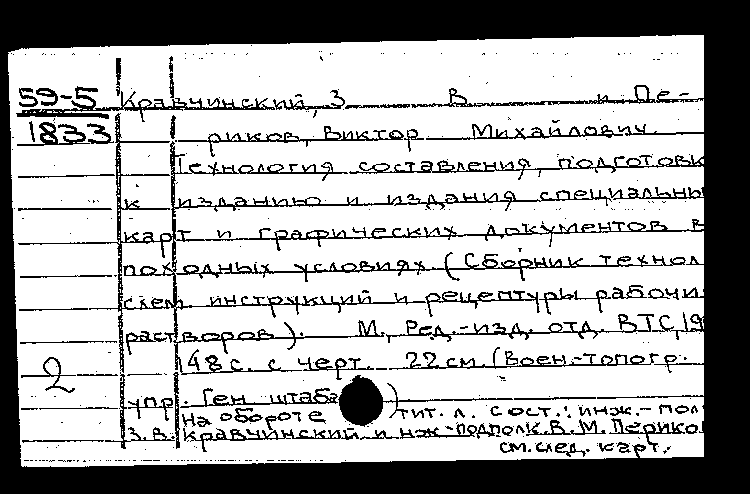 59-5 Кравчинский, З В и Пе-
1833 риков, Виктор Михайлович.
Технология составления, подготовк
к изданию и издания специальны
карт и графических документов в
походных условиях (Сборник технол
схем инструкций и рецептуры рабочи
растворов). М., Ред.-изд. отд. ВТС, 19
148 с. с черт. 22 см. (Воен.-топогр.
2
упр. Ген штаба )
На обороте тит. л. сост.: инж.-пол
З. В. Кравчинский и нж-подполк. В. М. Перико
см. след. карт.